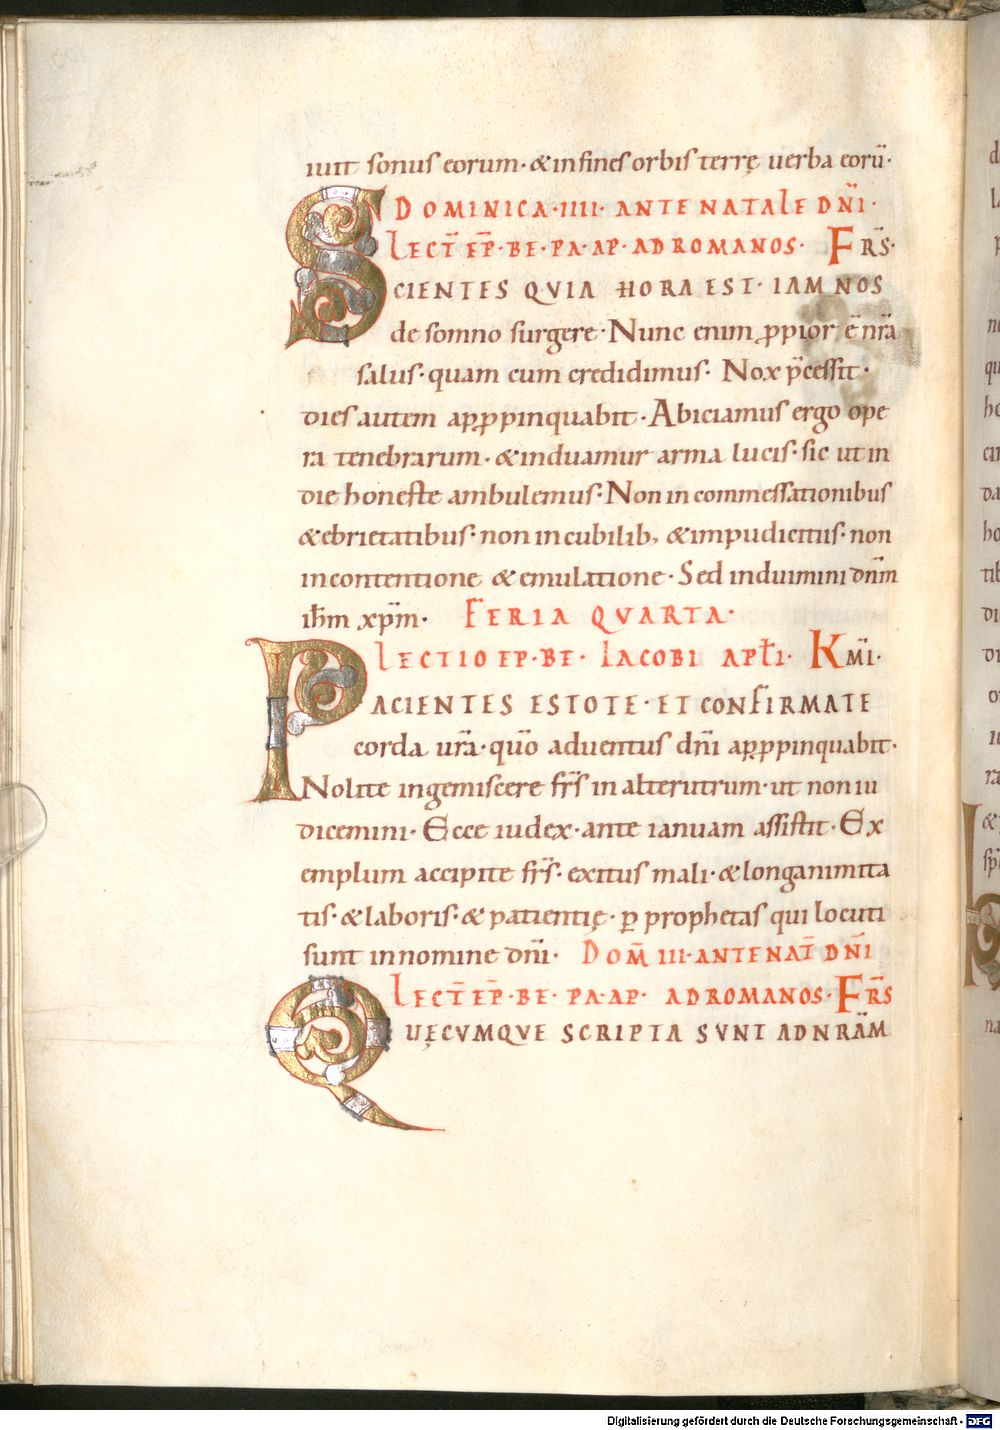 iuit sonus eorum · & in fines orbis terrę uerba eorū ·
DOMINICA · IIII · ANTE NATALE DÑI ·
LECT̄ EP̄ · BE · PA · AP · AD ROMANOS · FR̄S ·
SCIENTES QVIA HORA EST · IAM NOS
de somno surgere · Nunc enim ꝓpior ē nr̄a
salus · quam cum credidimus · Nox p̄cessit ·
dies autem apꝓpinquabit · Abiciamus ergo ope
ra tenebrarum · & induamur arma lucis · sic ut in
die honeste ambulemus · Non in commessationibus
& ebrietatibus · non in cubilib; & impudicitiis · non
in contentione & emulatione · Sed induimini dn̄m
ih̄m xp̄m · FERIA QVARTA ·
LECTIO EP · BE · IACOBI APŁI · KM̄I ·
PACIENTES ESTOTE · ET CONFIRMATE
corda ur̄a · quō aduentus dn̄i apꝓpinquabit ·
Nolite ingemiscere fr̄s in alterutrum · ut non iu
dicemini · Ecce iudex · ante ianuam assistit · Ex
emplum accipite fr̄s · exitus mali · & longanimita
tis · & laboris · & patientię · ꝑ prophetas qui locuti
sunt in nomine dn̄i · DOM̄ III · ANTE NAT̄ DN̄I
LECT̄ EP̄ · BE · PA · AP · AD ROMANOS · FR̄S
QUĘCVMQVE SCRIPTA SVNT AD NR̄AM
Digitalisierung gefördert durch die Deutsche Forschungsgemeinschaft - DFG